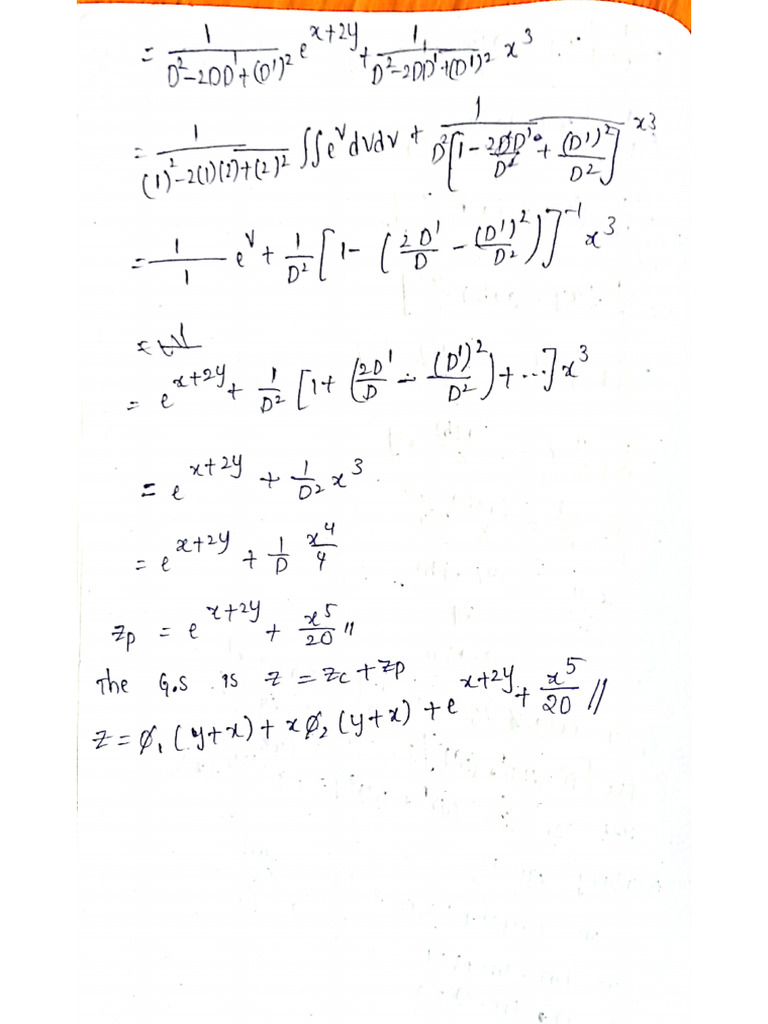 = 1/(D²-2DD'+(D')²) e^(x+2y) + 1/(D²-2DD'+(D')²) x³
= 1/((1)²-2(1)(2)+(2)²) ∫∫e^v dv dv + 1/(D²[1 - 2DD'/D² + (D')²/D²]) x³
= 1/1 e^v + 1/D² [1 - (2D'/D - (D')²/D²)]^-1 x³
= e^(x+2y) + 1/D² [1 + (2D'/D - (D')²/D²) + ...] x³
= e^(x+2y) + 1/D² x³
= e^(x+2y) + 1/D x⁴/4
zp = e^(x+2y) + x⁵/20 //
The G.S is z = zc + zp
z = ϕ₁(y+x) + xϕ₂(y+x) + e^(x+2y) + x⁵/20 //